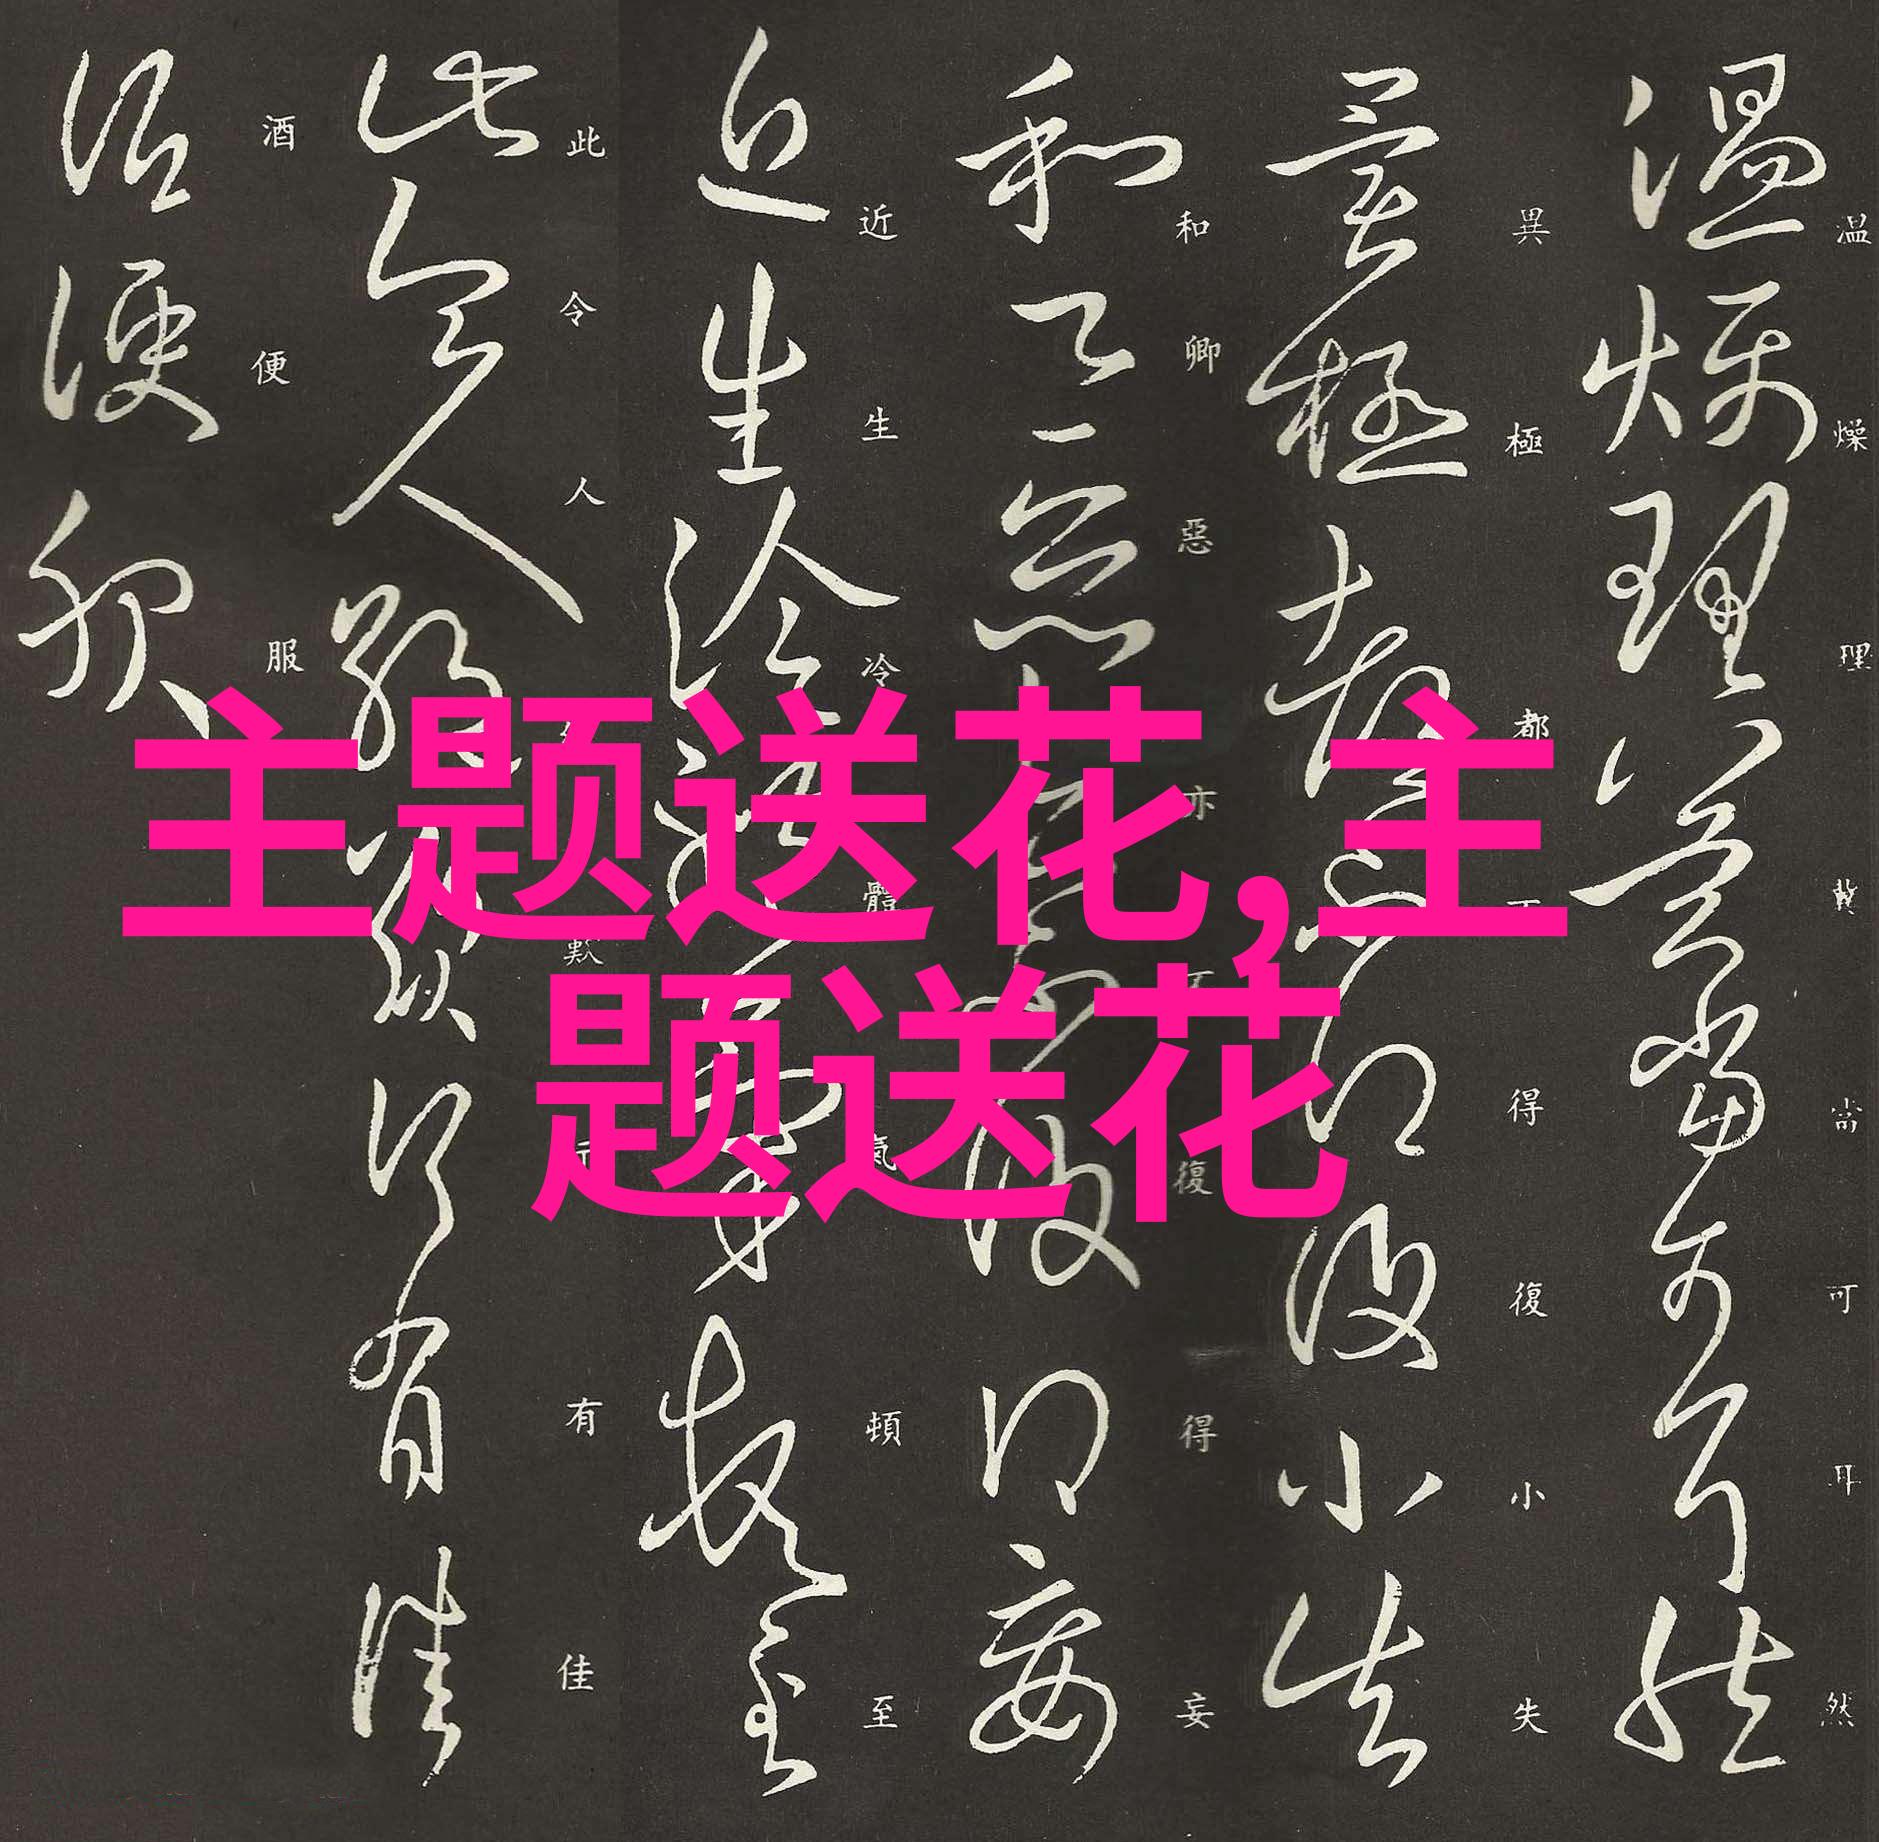 主题送花,主
题送花
温燥理冀尚可耳然
異極都不得復小失
和卿惡亦不復得妄
近生冷體氣頓至
此令人歎有佳
酒便服